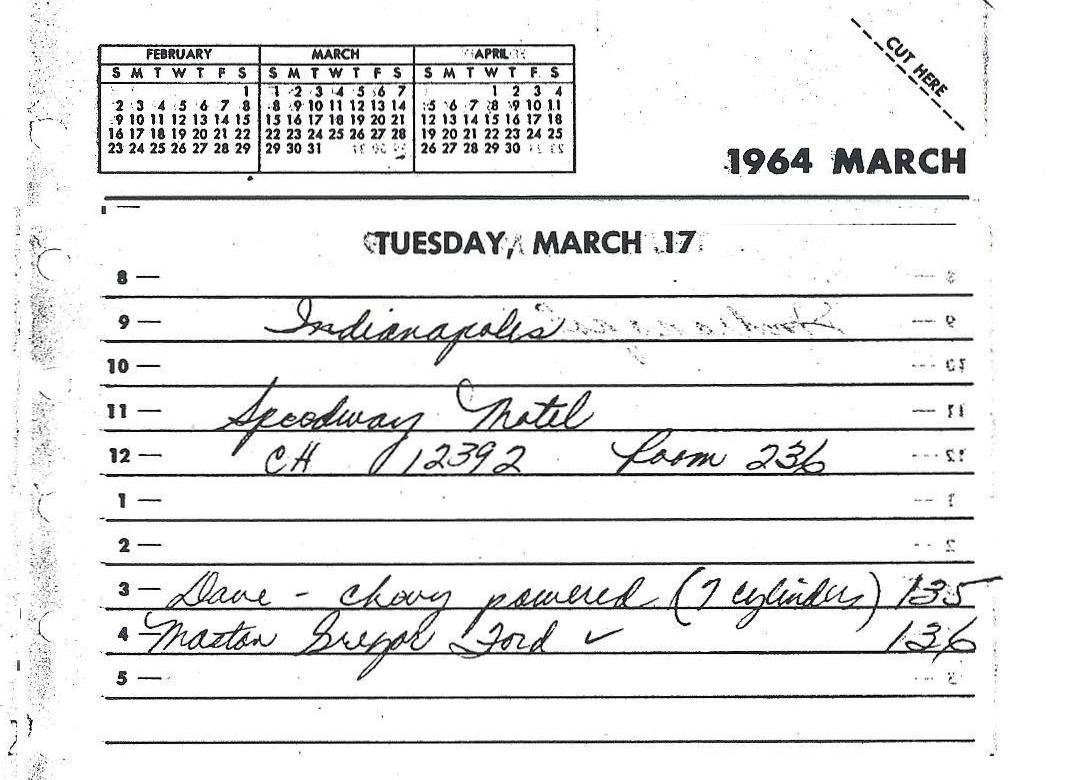 FEBRUARY MARCH APRIL
S M T W T F S S M T W T F S S M T W T F S
1 1 2 3 4 5 6 7 1 2 3 4
2 3 4 5 6 7 8 8 9 10 11 12 13 14 5 6 7 8 9 10 11
9 10 11 12 13 14 15 15 16 17 18 19 20 21 12 13 14 15 16 17 18
16 17 18 19 20 21 22 22 23 24 25 26 27 28 19 20 21 22 23 24 25
23 24 25 26 27 28 29 29 30 31 26 27 28 29 30
CUT HERE
1964 MARCH
TUESDAY, MARCH 17
8 —
9 — Indianapolis
10 —
11 — Speedway Motel
12 — CH 12392 Room 236
1 —
2 —
3 — Dave - chevy powered (7 cylinders) 135
4 — Maston Gregor Ford ✓ 136
5 —